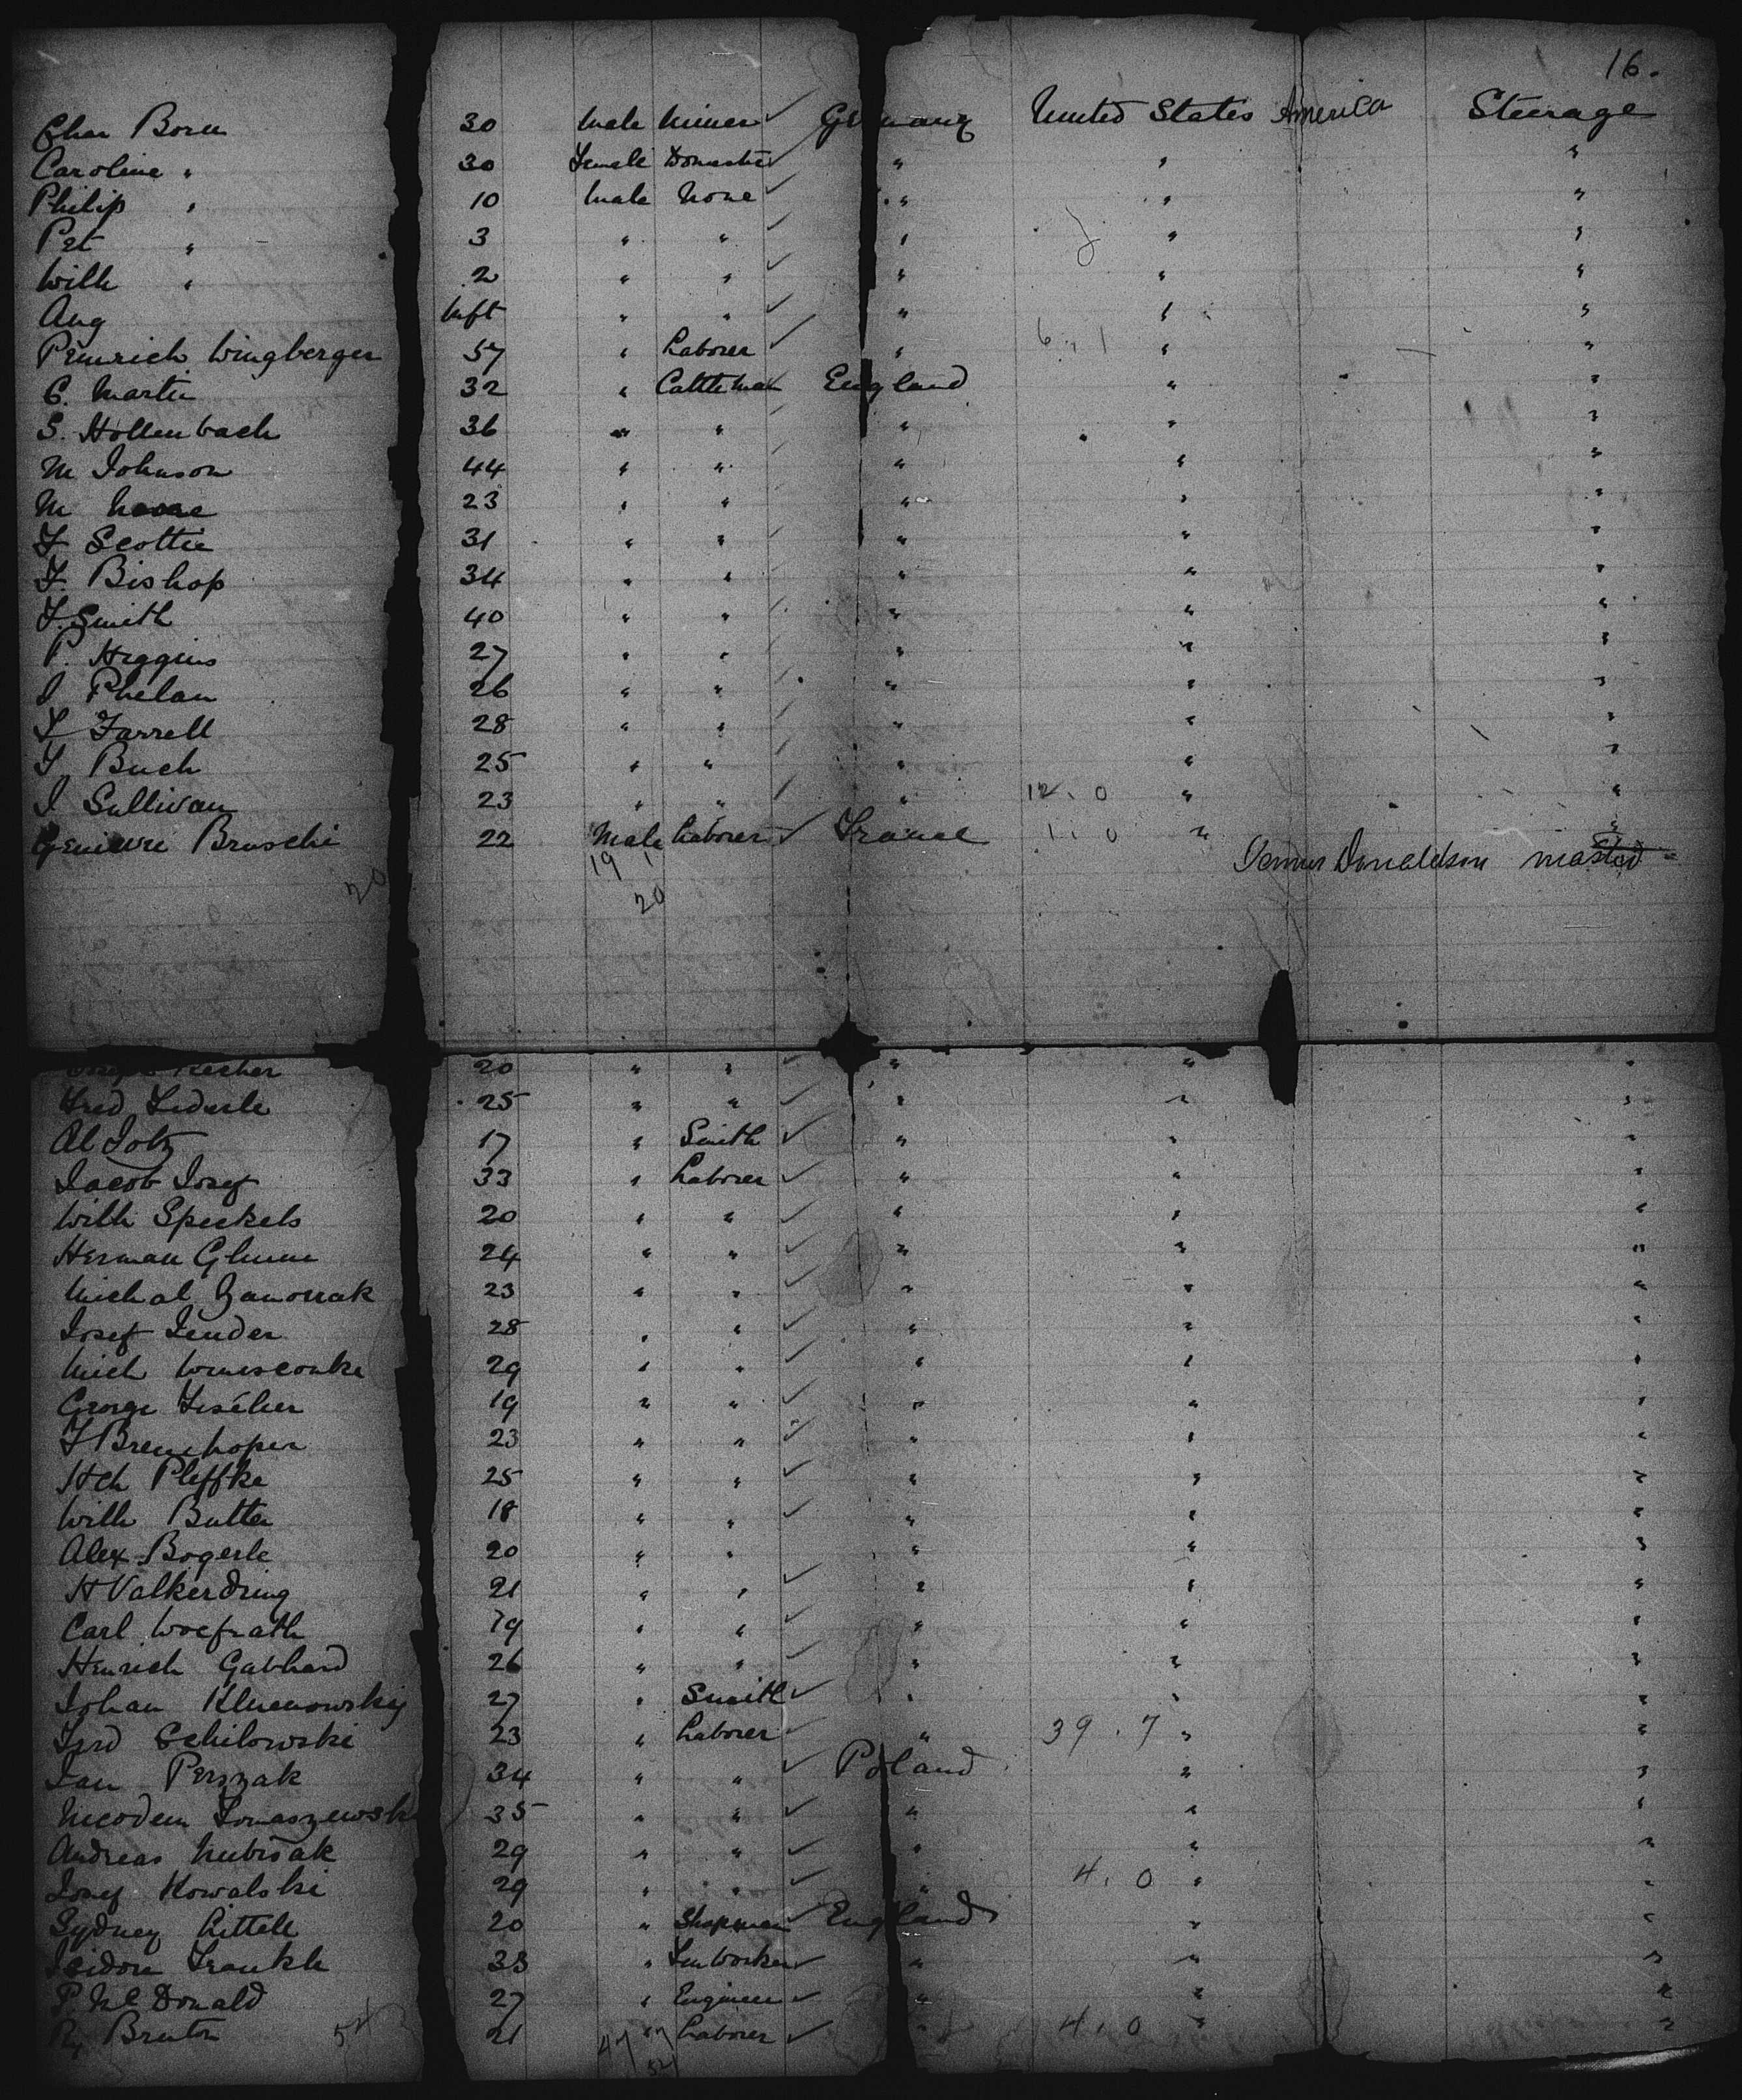 16.
Chas Born 30 Male Miner ✓ Germany United States America Steerage
Caroline " 30 Female Domestic ✓ " " "
Philip " 10 Male None ✓ " " "
Pet " 3 " " ✓ " " "
Wilh " 2 " " ✓ " " "
Aug Inft " " ✓ " " "
Heinrich Wingberger 57 " Laborer ✓ " 6 . 1 " "
C. Martin 32 " Cattleman England " "
S. Hollenbach 36 " " " " "
M Johnson 44 " " " " "
M Moore 23 " " " " "
F Scottie 31 " " " " "
F. Bishop 34 " " " " "
F. Smith 40 " " " " "
P. Higgins 27 " " " " "
J Phelan 26 " " " " "
L Farrell 28 " " " " "
Buch 25 " " " " "
J Sullivan 23 " " " 12 . 0 " "
Bruschi 22 Male Laborer ✓ France 1 . 0 " "
Donaldson master
20 19 1
20
20 " " ✓ " " "
Fred Lederle 25 " " ✓ " " "
Al 17 " Smith ✓ " " "
Jacob Josef 33 " Laborer ✓ " " "
Wilh Speckels 20 " " ✓ " " "
Herman 24 " " ✓ " " "
Michal 23 " " ✓ " " "
Josef 28 " " ✓ " " "
Mich 29 " " ✓ " " "
George Fischer 19 " " ✓ " " "
F 23 " " ✓ " " "
Hch Pleffke 25 " " ✓ " " "
Wilh Butta 18 " " ✓ " " "
Alex Bogerle 20 " " " " "
H Valkerdring 21 " " ✓ " " "
Carl Woefrath 19 " " ✓ " " "
Henrich Gabhard 26 " " ✓ " " "
Johan 27 " Smith ✓ " " "
Ferd Schilowski 23 " Laborer ✓ " 39 . 7 " "
Jan Perszak 34 " " ✓ Poland " "
Nicodem Tomaszewski 35 " " ✓ " " "
Andreas Nubisak 29 " " ✓ " " "
Josef Kowalski 29 " " ✓ " 4 . 0 " "
Sydney Littell 20 " Shopman ✓ England " "
Isidore Frankle 33 " ✓ " " "
P. McDonald 27 " Engineer ✓ " " "
Bruton 21 " Laborer ✓ " 4 . 0 " "
54 47 7
54